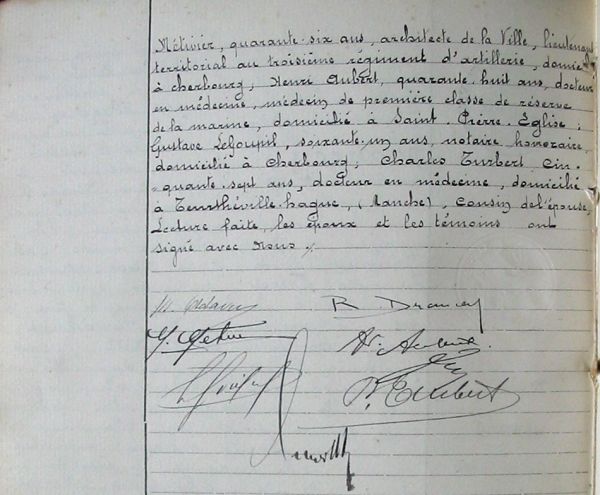 Métivier, quarante-six ans, architecte de la Ville, lieutenant
territorial au troisième régiment d'artillerie, domicilié
à Cherbourg; Henri Aubert, quarante-huit ans, docteur
en médecine, médecin de première classe de réserve
de la marine, domicilié à Saint-Pierre-Église;
Gustave LeGoupil, soixante-un ans, notaire honoraire,
domicilié à Cherbourg; Charles Turbert, cin-
-quante-sept ans, docteur en médecine, domicilié
à Teurthéville-hague, (Manche), cousin de l'épouse,
Lecture faite, les époux et les témoins ont
signé avec Nous ./.